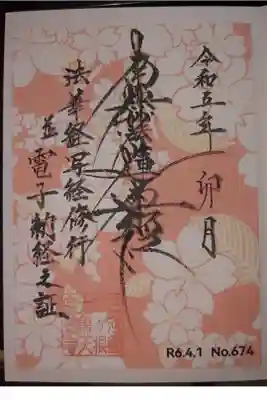 令和五年 卯月
南無妙法蓮華経
法華経写経修行
並 電子納経之証
R6.4.1 No.674